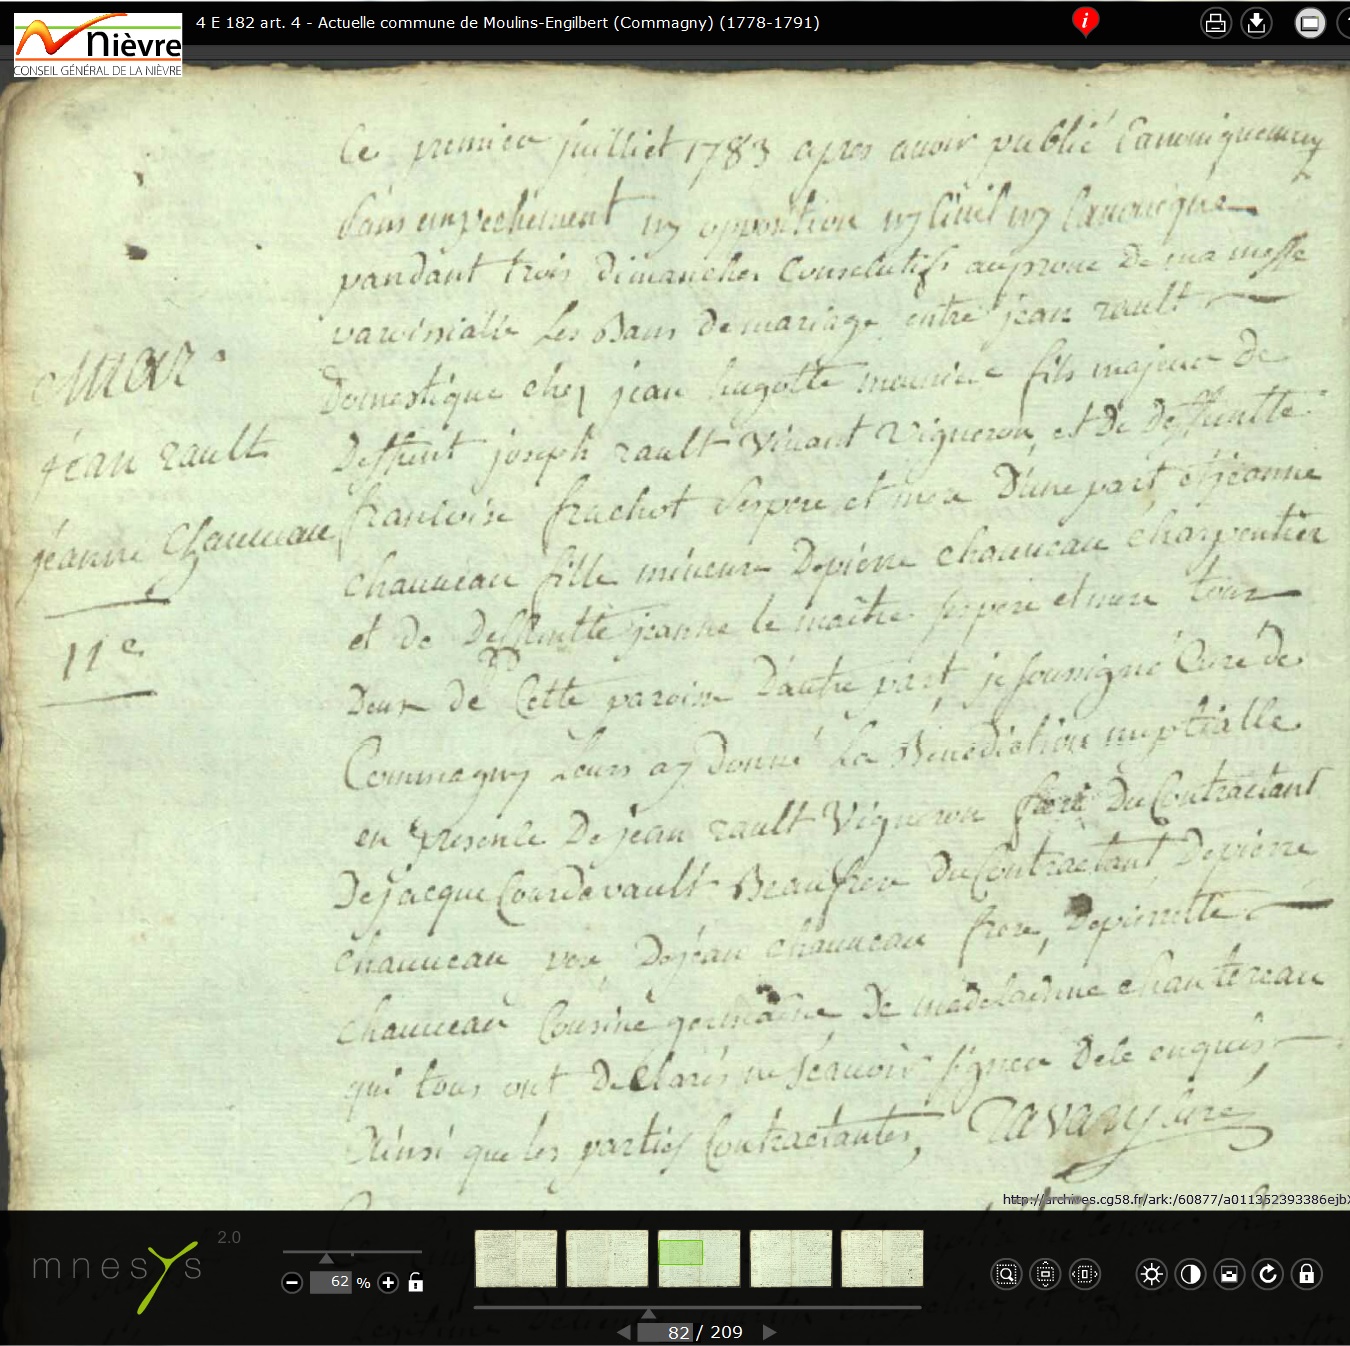 4 E 182 art. 4 - Actuelle commune de Moulins-Engilbert (Commagny) (1778-1791)
Nièvre
CONSEIL GÉNÉRAL DE LA NIÈVRE
Ce premier juilliet 1783 apres auoir publié Canoniquemeny
sans empechement ny opposition ny Ciuil ny Canonique
pandant trois dimanches Consecutifs au prone de ma messe
paroissialle Les Bans de mariage entre jean rault
Domestique chez jean hugotte meunier fils majeur de
Deffunt joseph rault Viuant Vigneron, et de Deffuntte
francoise frachot Ses pere et mere D'une part et jeanne
chauueau fille mineure De pierre chauueau charpentier
et de Deffuntte jeanne le maître ses pere et mere tous
Deux de Cette paroisse D'autre part, je soussigné Curé de
Commagny Leurs ay Donné La Bénédiction nuptialle
en presence De jean rault Vigneron frere Du Contractant
De jacque Courdavault Beaufrere Du Contractant, De pierre
chauueau pere, De jean chauueau frere, De pierrette
chauueau Cousine germaine De madelainne chautereau
qui tous ont Declarés ne sçauoir signer De ce enquis
Ainsi que les parties Contractantes, Ravary Curé
Mar
jéan rault
jéanne Chauueau
11e
http://archives.cg58.fr/ark:/60877/a011352393386ejb
mnesys 2.0
62 %
82 / 209